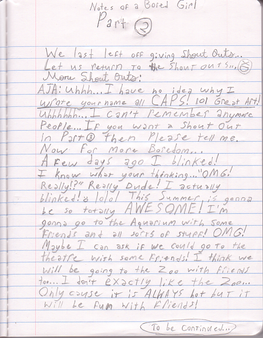 Notes of a Bored Girl
Part ②
We last left off giving Shout Outs...
Let us return to the Shout Outs in ②
More Shout Outs:
AJA: Uhhh... I have no idea why I
wrote your name all CAPS! lol Great bit!
Uhhhhhh... I can't remember anymore
People... If you want a Shout Out
in Part ③ Then Please tell me.
Now for More Boredom...
A few days ago I blinked!
I know what your thinking... "OMG!
Really!?" Really Dude! I actually
blinked! lolol This Summer is gonna
be so totally AWESOME! I'm
gonna go to the Aquarium with some
Friends and all sorts of stuff! OMG!
Maybe I can ask if we could go to the
theatre with some Friends! I think we
will be going to the Zoo with Friends
too... I don't exactly like the Zoo...
Only cause it is ALWAYS hot but it
will be fun with Friends!
To be Continued...